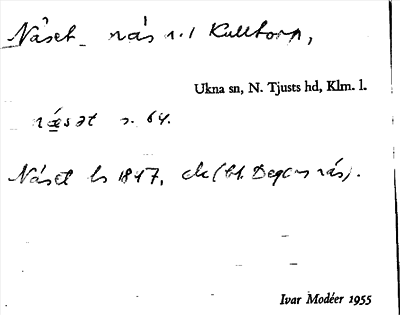 Näset näs i. l Kulltorp,
Ukna sn, N. Tjusts hd, Klm. l.
näsət s. 64.
Näset ls 1847, ek (bl. Degens näs).
Ivar Modéer 1955